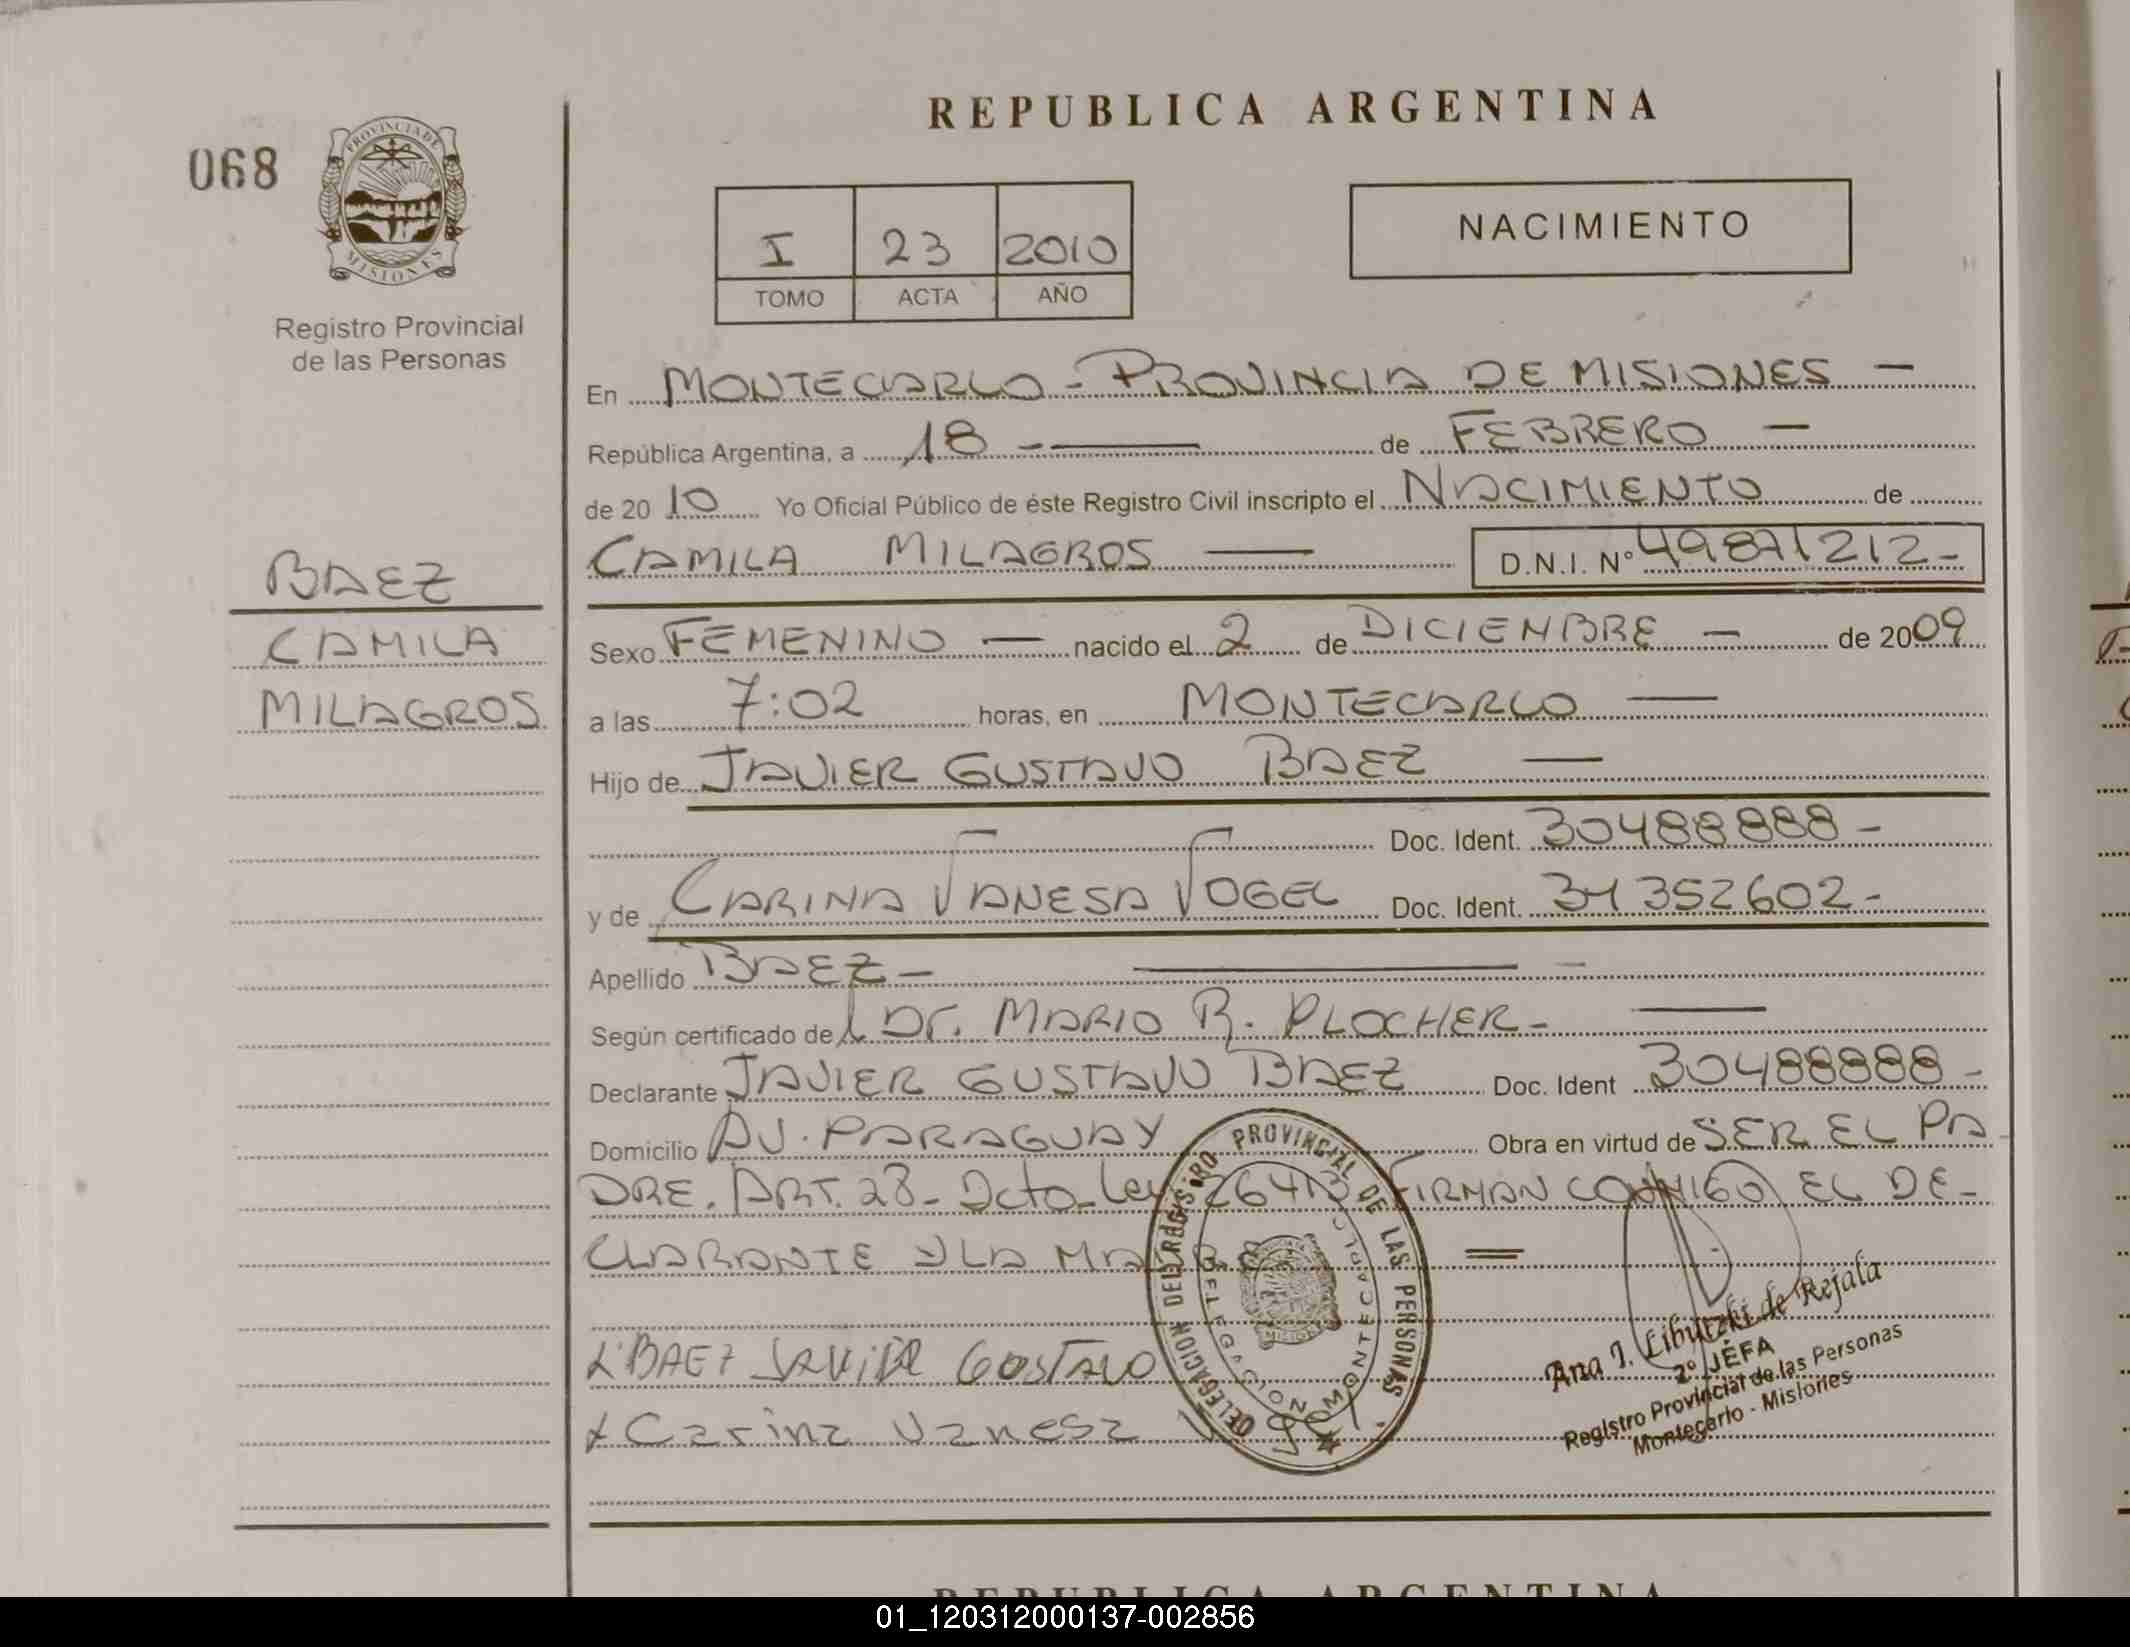 REPUBLICA ARGENTINA
068
PROVINCIA DE
MISIONES
Registro Provincial
de las Personas
I 23 2010
TOMO ACTA AÑO
NACIMIENTO
BAEZ
CAMILA
MILAGROS
En MONTECARLO - PROVINCIA DE MISIONES —
República Argentina, a 18 - — de FEBRERO —
de 2010 Yo Oficial Público de éste Registro Civil inscripto el NACIMIENTO de
CAMILA MILAGROS — D.N.I. Nº 49871212-
Sexo FEMENINO — nacido el 2 de DICIEMBRE — de 2009
a las 7:02 horas, en MONTECARLO —
Hijo de JAVIER GUSTAVO BAEZ —
Doc. Ident. 30488888 -
y de CARINA VANESA VOGEL Doc. Ident. 34352602-
Apellido BAEZ - —
Según certificado del Dr. MARIO R. PLOCHER - —
Declarante JAVIER GUSTAVO BAEZ Doc. Ident 30488888 -
Domicilio AV. PARAGUAY Obra en virtud de SER EL PA
DRE. ART. 28- Dcto-Ley 26413 FIRMAN CONMIGO EL DE-
CLARANTE Y LA MADRE =
BAEZ JAVIER GUSTAVO
Carina Vanesa
DELEGACION DEL REGISTRO PROVINCIAL DE LAS PERSONAS
DELEGACION MONTECARLO
MISIONES
Ana I. Libutzki de Rejala
2º JEFA
Registro Provincial de las Personas
Montecarlo - Misiones
REPUBLICA ARGENTINA
01_120312000137-002856